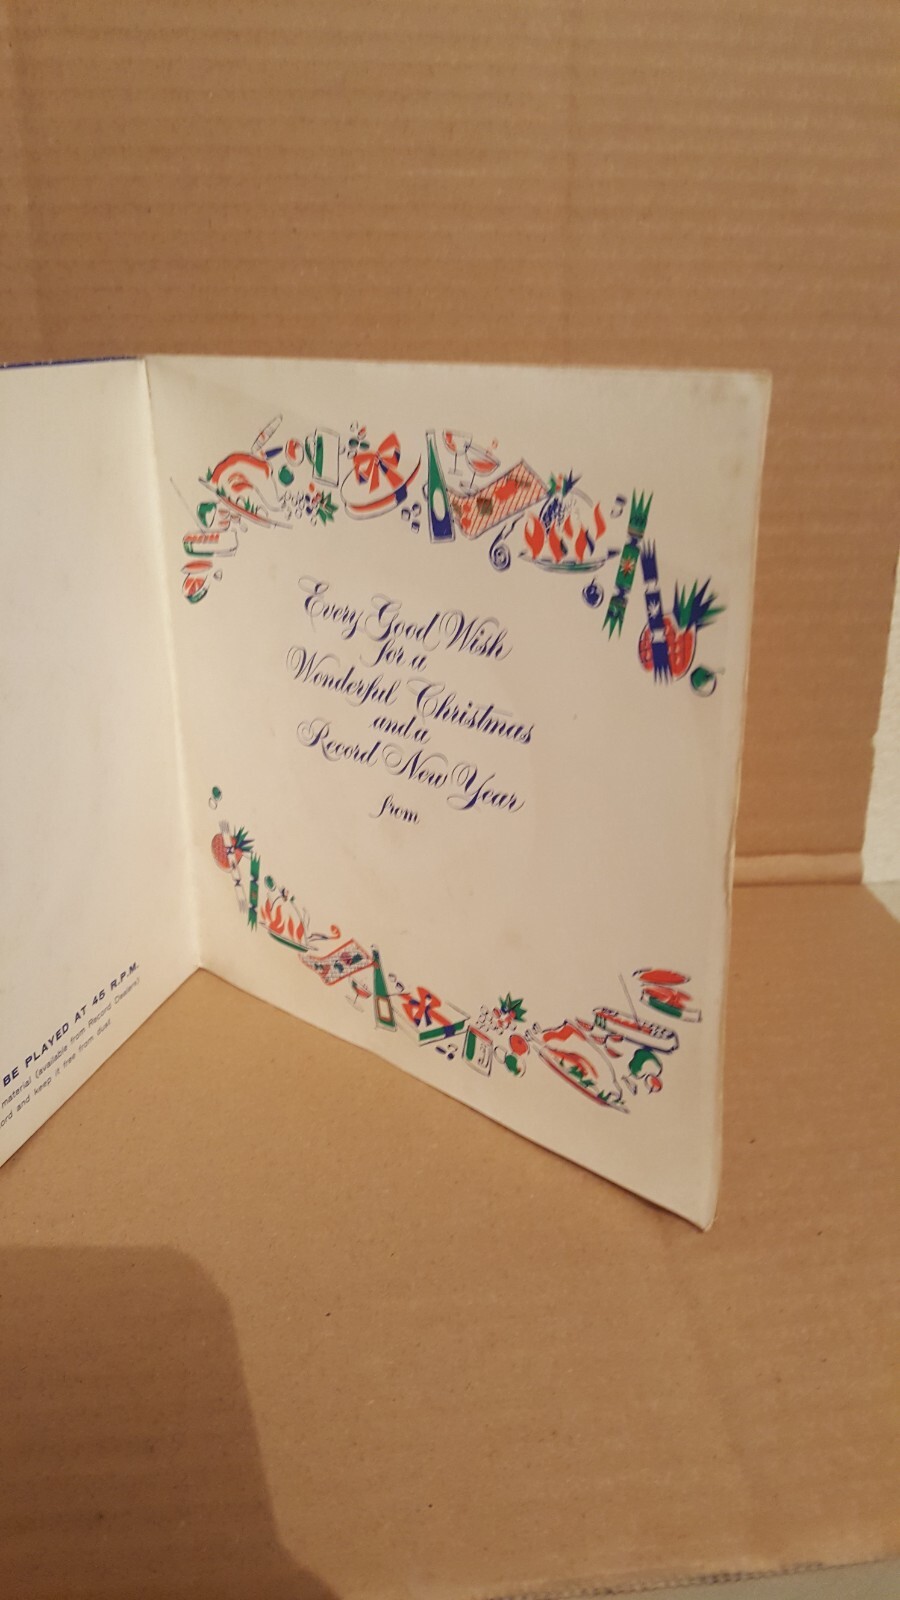 BE PLAYED AT 45 R.P.M.
material (available from Record Dealers)
ord and keep it free from dust
Every Good Wish
for a
Wonderful Christmas
and a
Record New Year
from